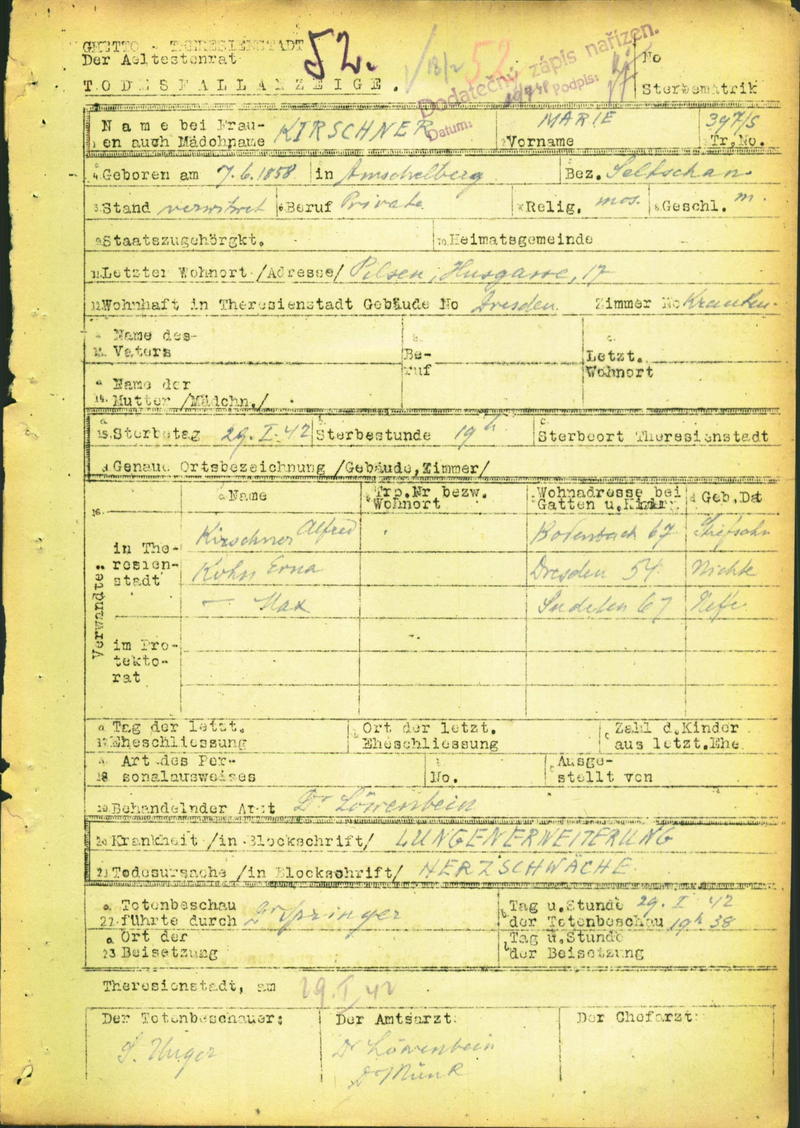 GHETTO - THERESIENSTADT
52.
1/13/2
52
Dodatečný zápis nařízen.
Der Aeltestenrat
No
Datum:
Podpis:
TODESFALLANZEIGE.
Sterbematrik
Name bei Frau-
en auch Mädchname KIRSCHNER
MARIE
Vorname
397/S
Tr. No.
Geboren am 7.6.1858 in Amschelberg Bez. Seltschan
Stand verwitwet Beruf Private Relig. mos. Geschl. m.
Staatszugehörgkt. Heimatsgemeinde
Letzter Wohnort /Adresse/ Pilsen, Husgasse, 17
Wohnhaft in Theresienstadt Gebäude No Dresden. Zimmer No Kranken-
Name des
Vaters
Be-
ruf
Letzt.
Wohnort
Name der
Mutter /Mädchn./
Sterbetag 29.I.42 Sterbestunde 19h Sterbeort Theresienstadt
Genaue Ortsbezeichnung /Gebäude, Zimmer/
Name
Trp. Nr bezw.
Wohnort
Wohnadresse bei
Gatten u. Kindern
Geb. Dat
Verwandte:
in The-
resien-
stadt
Kirschner Alfred Bodenbach 67 Stiefsohn
Kohn Erna Dresden 54 Nichte
— Max Sudeten 67 Neffe
im Pro-
tekto-
rat
Tag der letzt.
Eheschliessung
Ort der letzt.
Eheschliessung
Zahl d. Kinder
aus letzt. Ehe
Art des Per-
sonalausweises
No.
Ausge-
stellt von
Behandelnder Arzt Dr Löwenbein
Krankheit /in Blockschrift/ LUNGENERWEITERUNG
Todesursache /in Blockschrift/ HERZSCHWÄCHE
Totenbeschau
führte durch Dr Springer
Tag u. Stunde 29.I 42
der Totenbeschau 19h 38
Ort der
Beisetzung
Tag u. Stunde
der Beisetzung
Theresienstadt, am 29.I 42
Der Totenbeschauer: Der Amtsarzt: Der Chefarzt:
Dr Löwenbein
Dr Münk